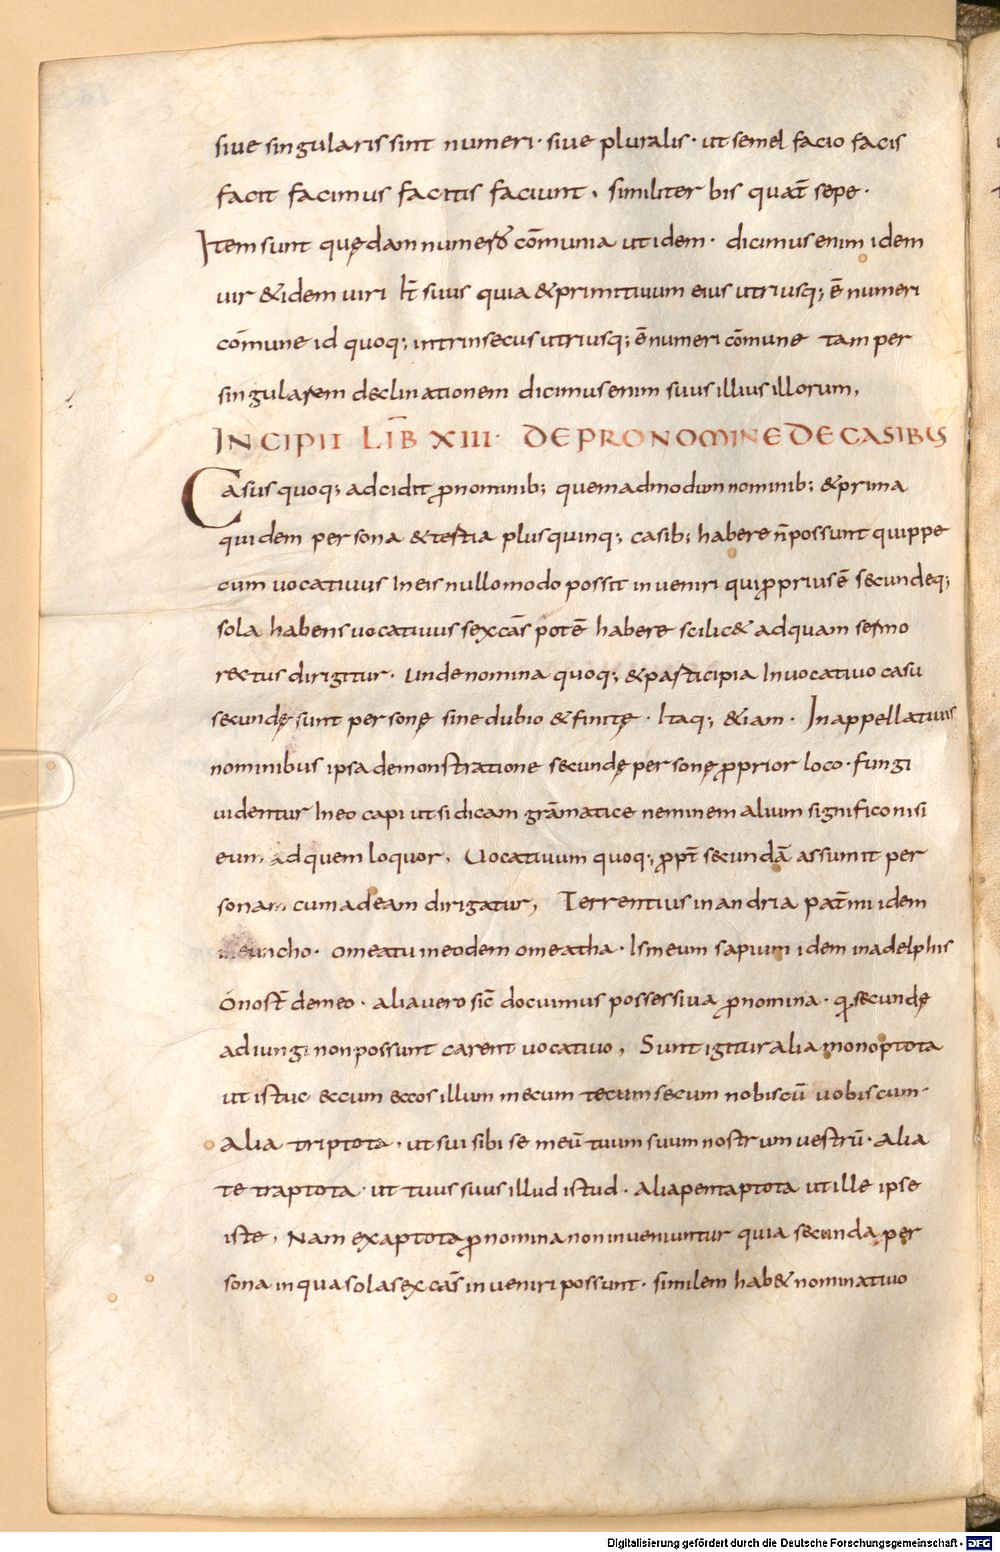 siue singularis sint numeri · siue pluralis · ut semel facio facis
facit facimus facitis faciunt , similiter bis quat̄ sepe ·
Item sunt quędam numerꝍ cōmunia ut idem · dicimus enim idem
uir & idem uiri ł̄t suus quia & primitiuum eius utriusq; ē numeri
cōmune id quoq; intrinsecus utriusq; ē numeri cōmune tam per
singularem declinationem dicimus enim suus illius illorum,
INCIPIT LIB̄ XIII · DE PRONOMINE DE CASIBUS
Casus quoq; adcidit ꝓnominib; quemadmodum nominib; & prima
quidem persona & testia plus quinq; casib; habere n̄ possunt quippe
cum uocatiuus In eis nullo modo possit inueniri qui ꝓprius ē secundeq;
sola habens uocatiuus sex cas̄ potē habere scilic& ad quam sermo
rectus dirigitur · Unde nomina quoq; & participia In uocatiuo casu
secundę sunt personę sine dubio & finitę · Itaq; &iam · In appellatiuis
nominibus ipsa demonstratione secundę personę ꝓprior loco · fungi
uidentur In eo capi ut si dicam grāmatice neminem alium significo nisi
eum ad quem loquor , Uocatiuum quoq; ꝓpt̄ secundā assumit per
sonam cum ad eam dirigatur, Terrentius in andria pat̄ mi idem
icho · o mea tu in eodem o mea tha · Is meum sapium idem in adelphis
ó nost̄ demeo · alia uero sic̄ docuimus possessiua ꝓnomina · q̨ secundę
adiungi non possunt carent uocatiuo , Sunt igitur alia monoptota
ut istuc eccum eccos illum mecum tecum secum nobiscū uobiscum ·
alia triptota · ut sui sibi se meū tuum suum nostrum uestrū · alia
te traptota · ut tuus suus illud istud · alia pentaptota ut ille ipse
iste , Nam exaptota ꝓnomina non inueniuntur quia secunda per
sona in qua sola sex cas̄ inueniri possunt · similem hab& nominatiuo
Digitalisierung gefördert durch die Deutsche Forschungsgemeinschaft - DFG